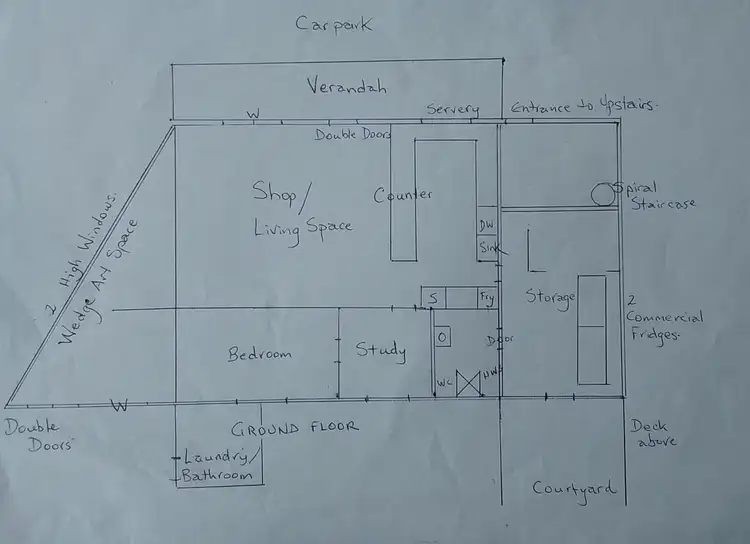 Car park
Verandah
W
Servery
Entrance to Upstairs.
Double Doors
Shop/
Living Space
Counter
Spiral
Staircase
DW
Sink
2 High Windows.
Wedge Art Space
S
Fry
Storage
2
Commercial
Fridges.
Bedroom
Study
O
Door
WC
HWS
W
Double
Doors
GROUND FLOOR
Deck
above
Laundry/
Bathroom
Courtyard